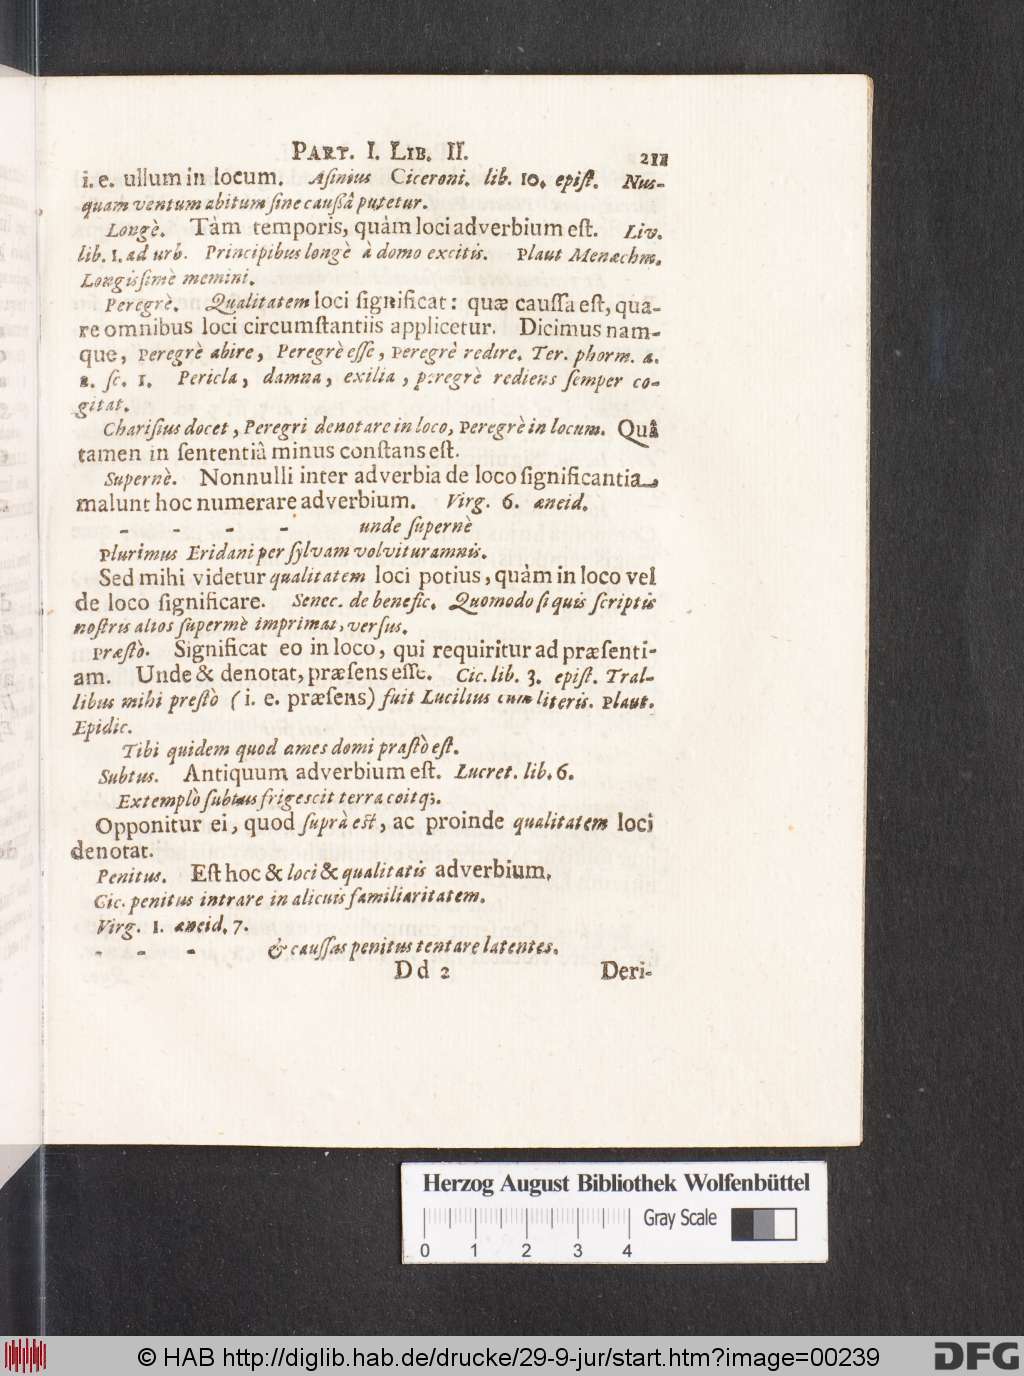 PART. I. LIB. II. 211
i. e. ullum in locum. Aſinius Ciceroni. lib. 10. epiſt. Nuſ-
quam ventum abitum ſine cauſſâ putetur.
Longè. Tàm temporis, quàm loci adverbium eſt. Liv.
lib. 1. ad urb. Principibus longè à domo excitis. Plaut Menæchm.
Longiſſimè memini.
Peregrè. Qualitatem loci ſignificat: quæ cauſſa eſt, qua-
re omnibus loci circumſtantiis applicetur. Dicimus nam-
que, Peregrè abire, Peregrè eſſe, Peregrè redire. Ter. phorm. a.
2. ſc. 1. Pericla, damna, exilia, peregrè rediens ſemper co-
gitat.
Chariſius docet, Peregri denotare in loco, Peregrè in locum. Quâ
tamen in ſententiâ minus conſtans eſt.
Supernè. Nonnulli inter adverbia de loco ſignificantia
malunt hoc numerare adverbium. Virg. 6. æneid.
- - - - unde ſupernè
Plurimus Eridani per ſylvam volvitur amnis.
Sed mihi videtur qualitatem loci potius, quàm in loco vel
de loco ſignificare. Senec. de benefic. Quomodo ſi quis ſcriptis
noſtris alios ſupermè imprimat, verſus.
Præſtò. Significat eo in loco, qui requiritur ad præſenti-
am. Unde & denotat, præſens eſſe. Cic. lib. 3. epiſt. Tral-
libus mihi preſtò (i. e. præſens) fuit Lucilius cum literis. Plaut.
Epidic.
Tibi quidem quod ames domi præſtò eſt.
Subtus. Antiquum adverbium eſt. Lucret. lib. 6.
Extemplò ſubtus frigescit terra coitq;.
Opponitur ei, quod ſuprà eſt, ac proinde qualitatem loci
denotat.
Penitus. Eſt hoc & loci & qualitatis adverbium.
Cic. penitus intrare in alicuis familiaritatem.
Virg. 1. æneid. 7.
- - - & cauſſas penitus tentare latentes.
D d 2 Deri-
Herzog August Bibliothek Wolfenbüttel
Gray Scale
0 1 2 3 4
© HAB http://diglib.hab.de/drucke/29-9-jur/start.htm?image=00239
DFG